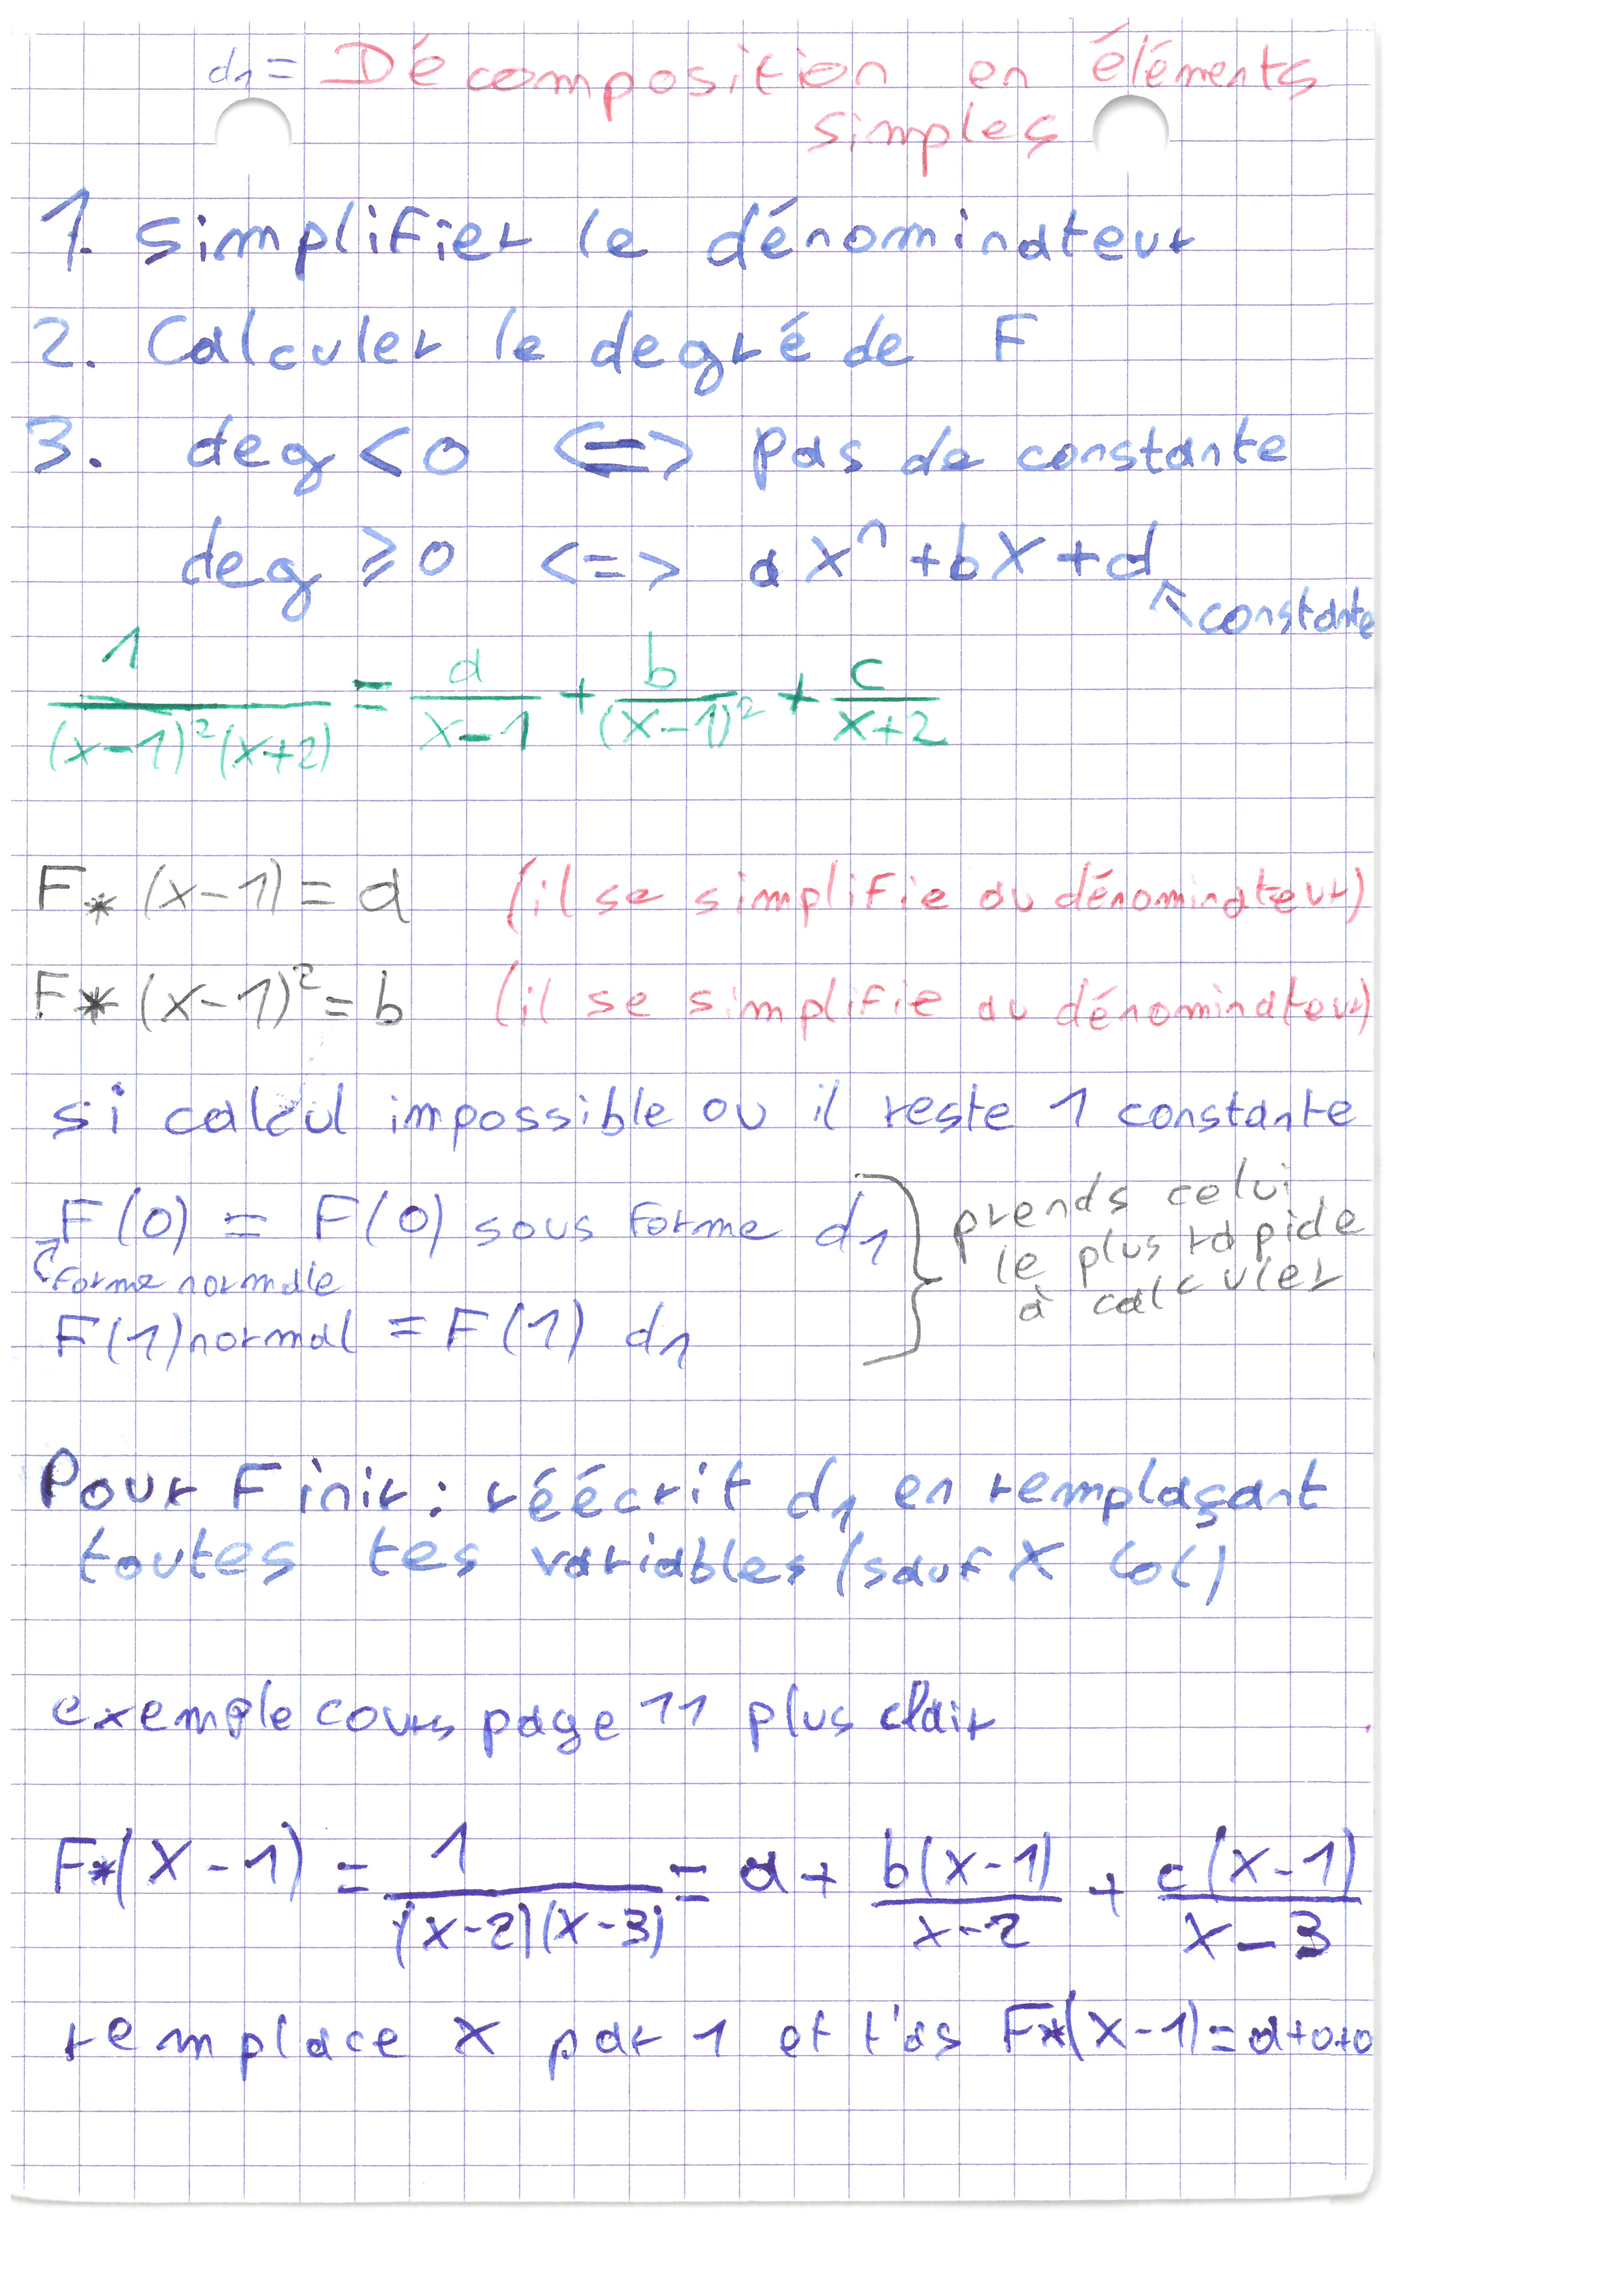 d1 = Décomposition en éléments
simples
1. simplifier le dénominateur
2. Calculer le degré de F
3. deg < 0 <=> pas de constante
deg ⩾ 0 <=> aX^n + bX + d
↖ constante
1/((x-1)²(x+2)) = a/(x-1) + b/(x-1)² + c/(x+2)
F * (x-1) = a (il se simplifie au dénominateur)
F * (x-1)² = b (il se simplifie au dénominateur)
si calcul impossible ou il reste 1 constante
F(0) = F(0) sous forme d1
forme normale
F(1) normal = F(1) d1
} prends celui
le plus rapide
à calculer
Pour Finir : réécrit d1 en remplaçant
toutes tes variables (sauf X lol)
exemple cours page 11 plus clair
F*(X-1) = 1/((x-2)(x-3)) = a + b(x-1)/(x-2) + c(x-1)/(x-3)
remplace x par 1 et t'as F*(X-1) = a+0+0